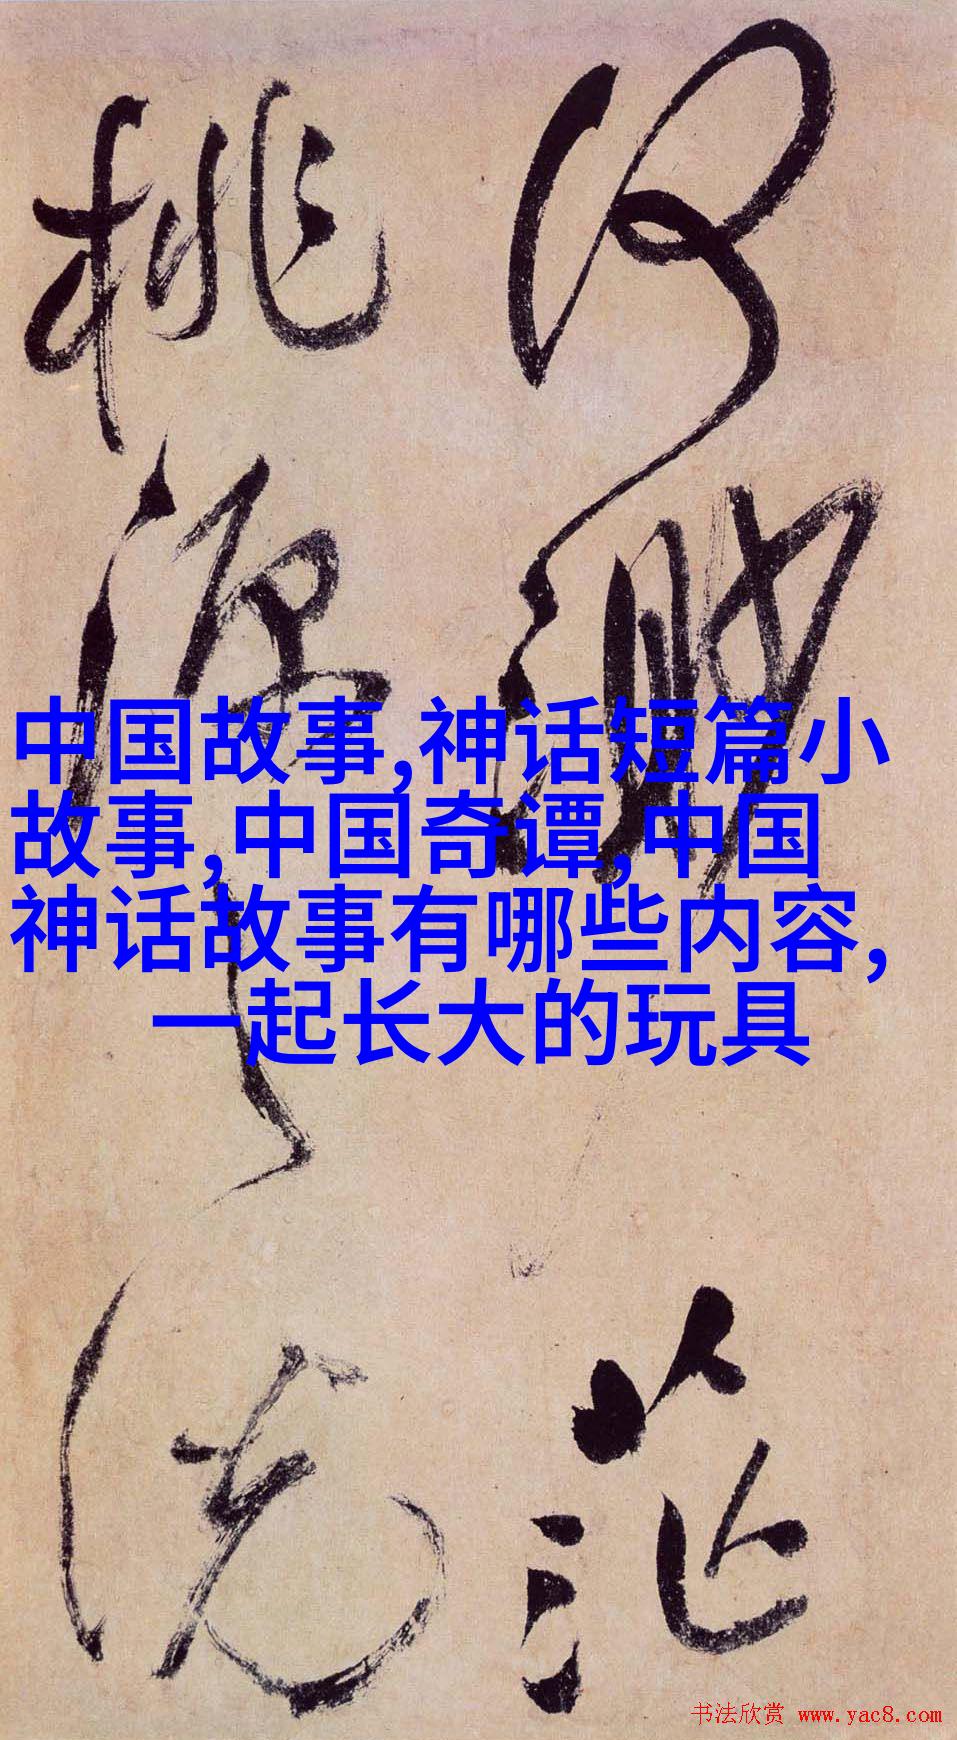 何渺茫
桃源之説
中国故事,神话短篇小
故事,中国奇谭,中国
神话故事有哪些内容,
一起长大的玩具
书法欣赏 www.yac8.com